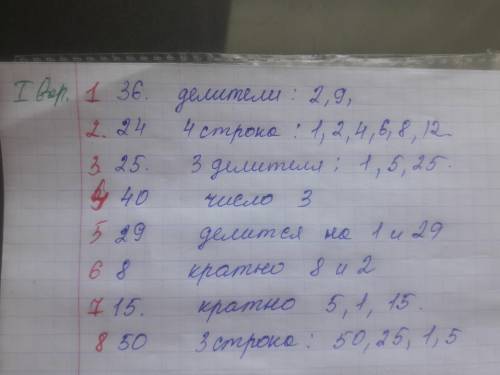 I вар. 1 36. делители: 2,9,
2. 24 4 строка: 1,2,4,6,8,12.
3. 25. 3 делителя: 1,5,25.
4 40 число 3
5 29 делится на 1 и 29
6 8 кратно 8 и 2
7 15. кратно 5,1,15.
8 50 3 строка: 50,25,1,5